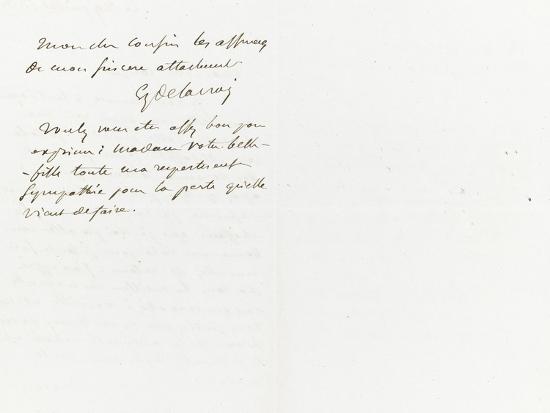 mon cher cousin les assurances
de mon sincere attachement
EugDelacroix
Voulez vous etre assez bon pour
exprimer à madame votre belle-
-fille toute ma respectueuse
Sympathie pour la perte qu'elle
vient de faire.